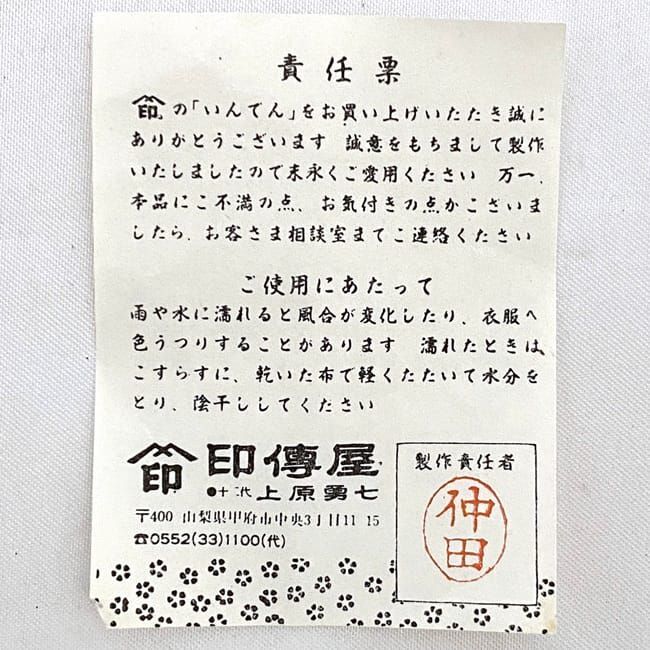 責任票
印の「いんでん」をお買い上げいたたき誠に
ありがとうございます 誠意をもちまして製作
いたしましたので末永くご愛用ください 万一、
本品にこ不満の点、お気付きの点かこさいま
したら、お客さま相談室までこ連絡ください
ご使用にあたって
雨や水に濡れると風合が変化したり、衣服へ
色うつりすることがあります 濡れたときは
こすらすに、乾いた布で軽くたたいて水分を
とり、陰干ししてください
印 印傳屋
●十二代 上原勇七
〒400 山梨県甲府市中央3丁目11 15
☎0552(33)1100(代)
製作責任者
仲田